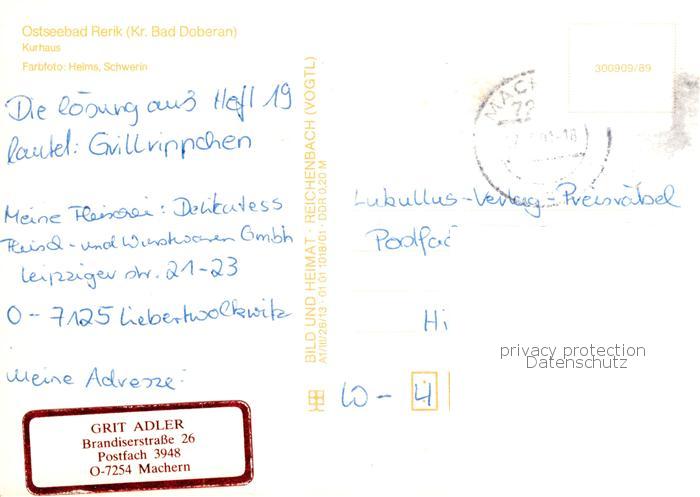 Ostseebad Rerik (Kr. Bad Doberan)
Kurhaus
Farbfoto: Helms, Schwerin
300909/89
Die Lösung aus Heft 19
lautet: Grillrippchen
Meine Fleischerei: Delikatess
Fleisch- und Wurstwaren GmbH
Leipziger Str. 21-23
O - 7125 Liebertwolkwitz
Meine Adresse:
GRIT ADLER
Brandiserstraße 26
Postfach 3948
O-7254 Machern
BILD UND HEIMAT · REICHENBACH (VOGTL)
A1/III/26/13 · 01 01 1018/01 · DDR 0,20 M
MACH
72
-18
Lukullus-Verlag-Preisrätsel
Postfac
Hi
W - 4
privacy protection
Datenschutz